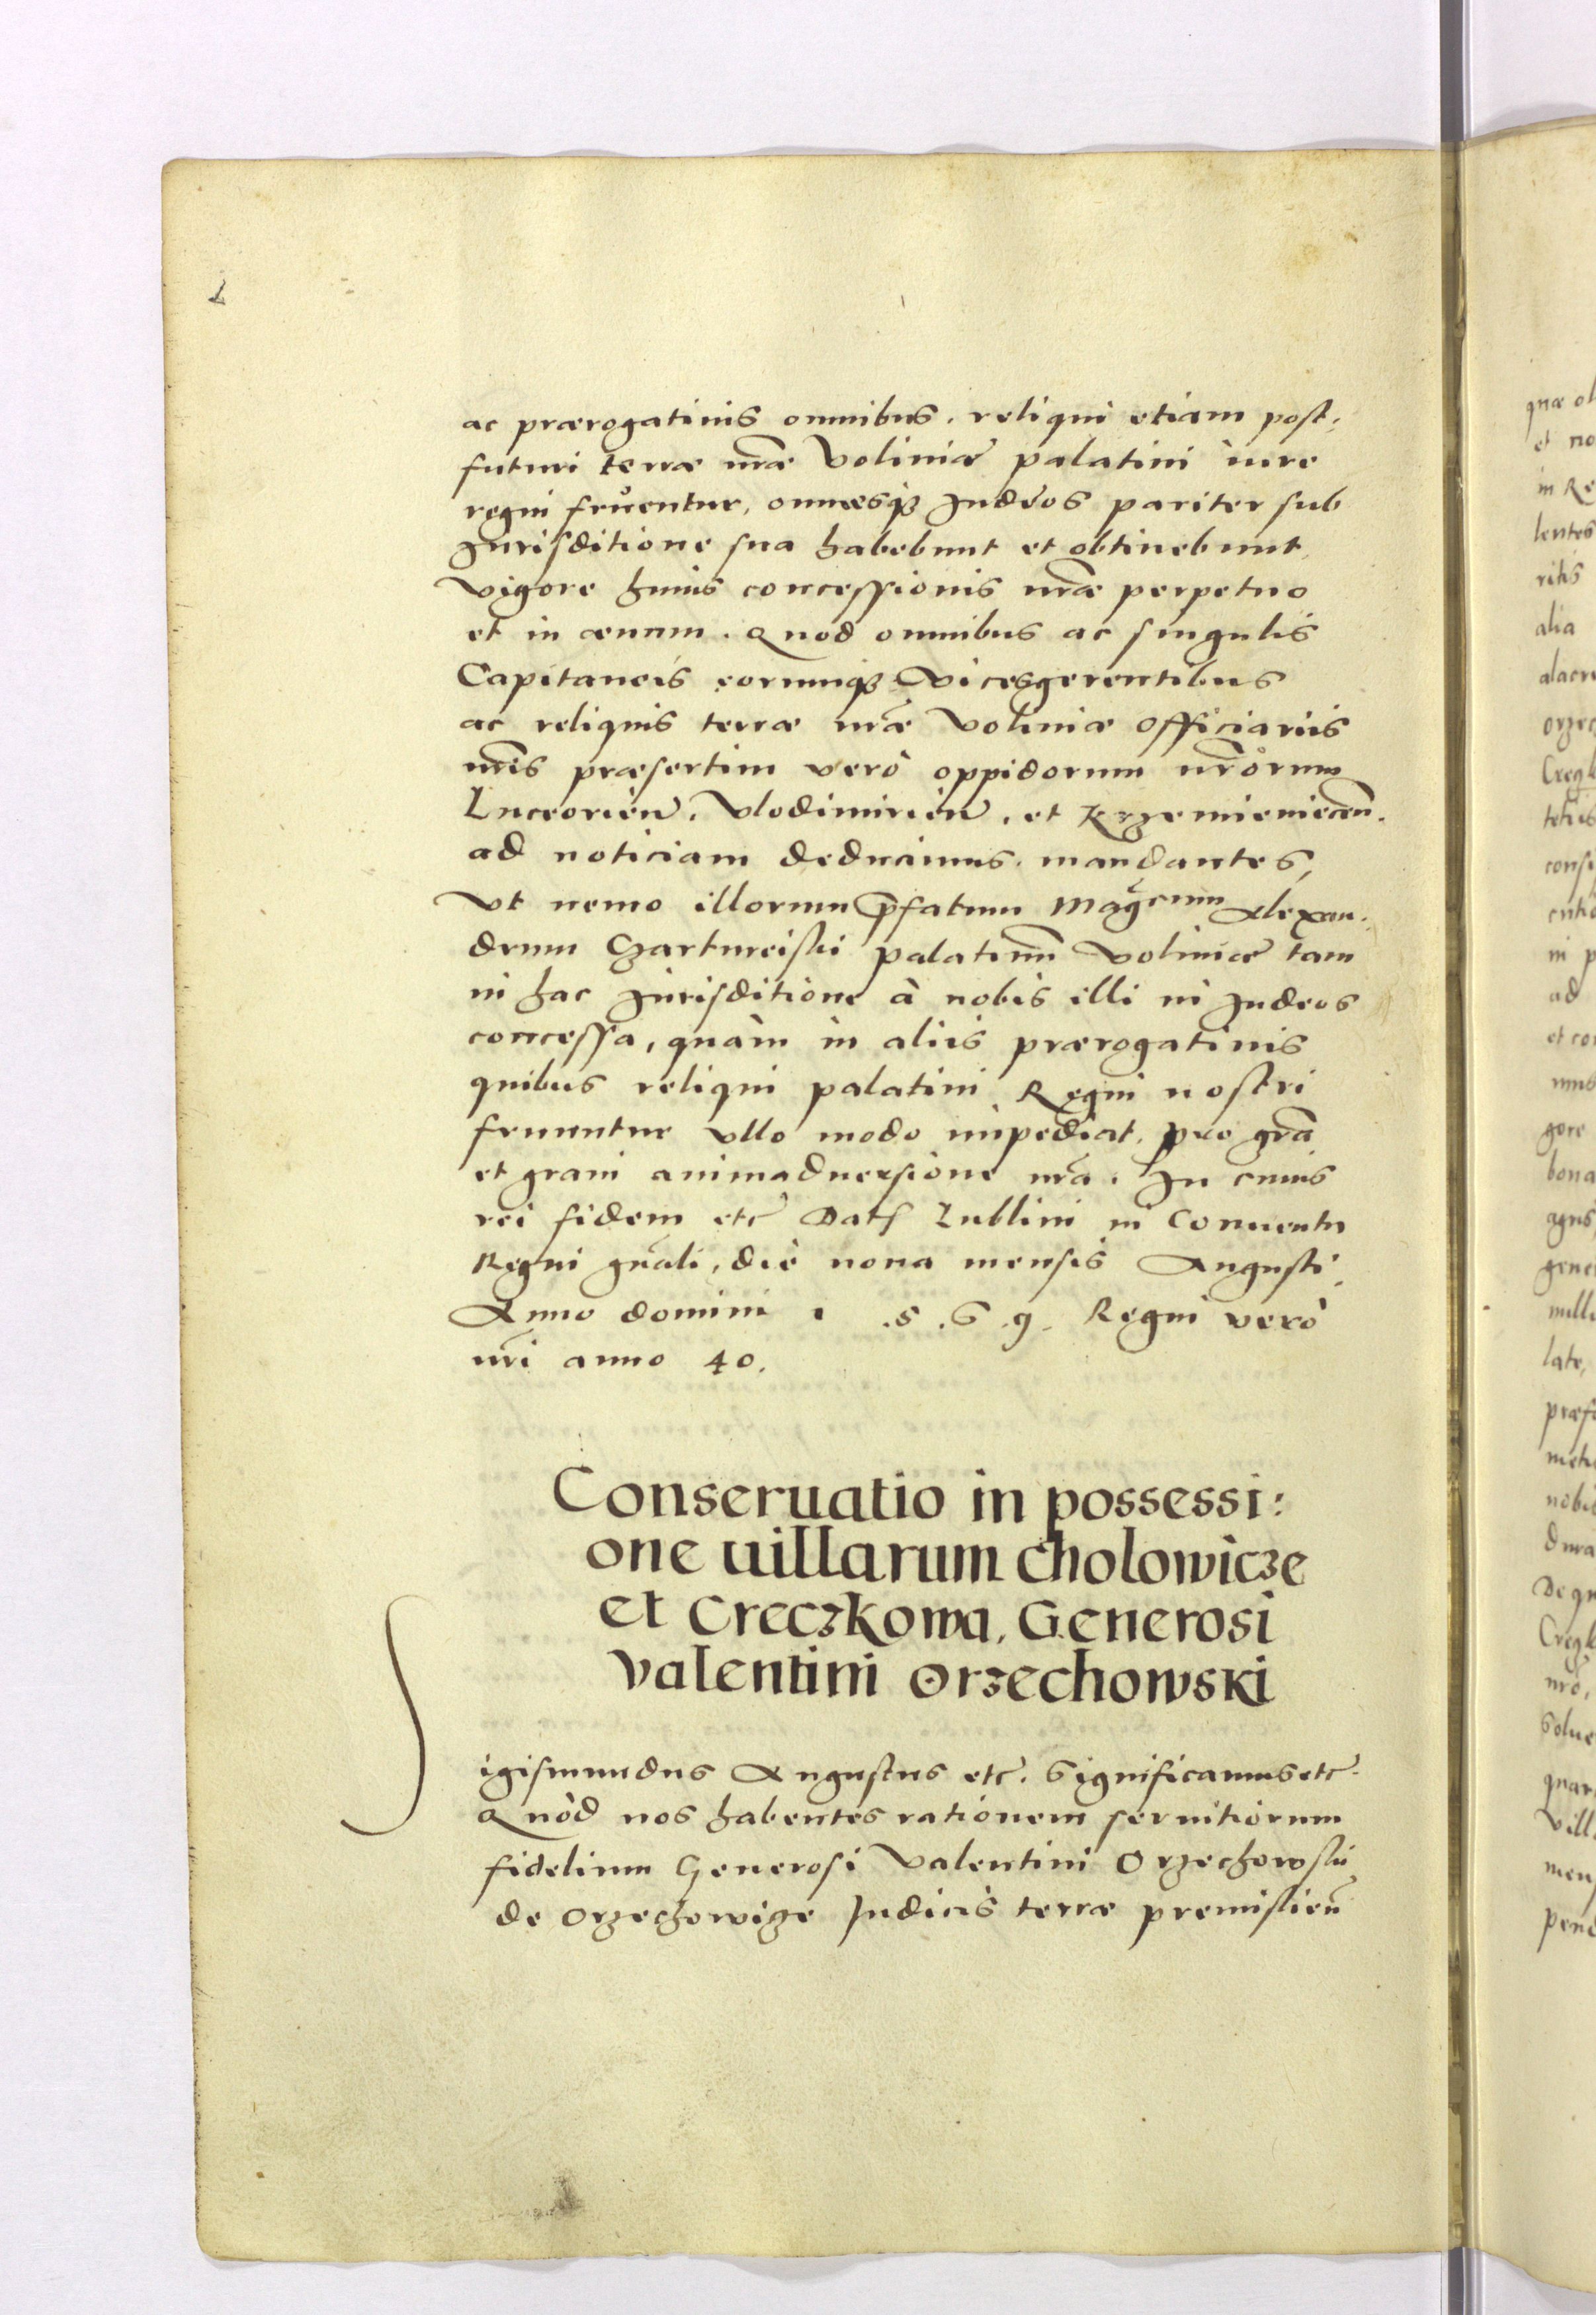 ac prærogatiuis omnibus. reliqui etiam post:
futuri terræ nr̃æ Voliniæ palatini iure
regni fruentur, omnesqꝫ Judeos pariter sub
Jurisditione sua habebunt et obtinebunt
vigore huius concessionis nr̃æ perpetuo
et in æuum. Quod omnibus ac singulis
Capitaneis eorumqꝫ vicesgerentibus
ac reliquis terræ nr̃æ Voliniæ officiariis
nr̃is præsertim verò oppidorum nr̃orum
Luceorien̄. Vlodimirien̄. et Krzemieniecen̄.
ad noticiam deducimus. mandantes,
vt nemo illorum p̄fatum Mag̃cum Alexan:
drum Czartureiski palatinū Voliniæ tam
in hac Jurisditione à nobis illi in Judeos
concessa, quàm in aliis prærogatiuis
quibus reliqui palatini Regni nostri
fruuntur vllo modo impediat, pro gr̃a
et graui animaduersione nr̃a. In cuius
rei fidem etc̃ Dat̃ Lublini in Conuentu
Regni gn̄ali, die nona mensis Augusti
Anno domini 1 .5.6.9. Regni verò
nr̃i anno 40.
Conseruatio in possessi:
one uillarum Cholowicze
et Creczkowa, Generosi
Valentini Orzechowski
Sigismundus Augustus etc̃. Significamus etc̃.
Quòd nos habentes rationem seruitiorum
fidelium Generosi Valentini Orzechowski
de Orzechowize Judicis terræ premislien̄